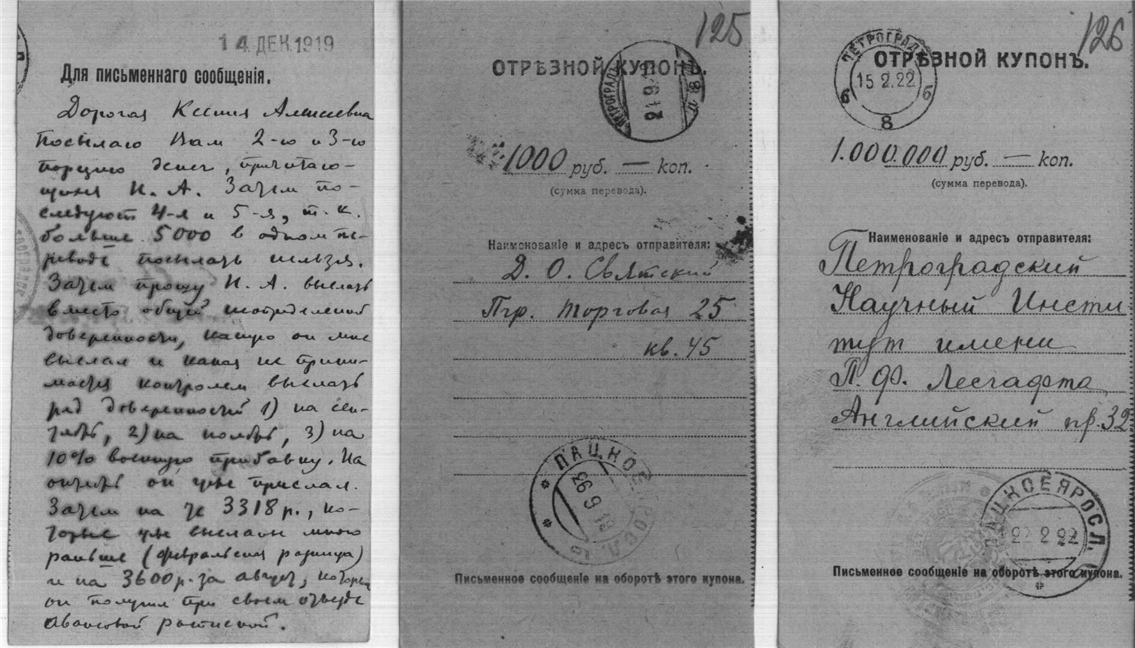 14 ДЕК.1919
Для письменнаго сообщенія.
Дорогая Ксения Алексеевна
Посылаю Вам 2-ю и 3-ю
порцию денег, причитаю-
щихся Н. А. Зачем по-
следуют 4-я и 5-я, т. к.
больше 5000 в одном пе-
реводе посылать нельзя.
Зачем прошу Н. А. выслать
вместо общей неопределенной
доверенности, какую он мне
выслал и какая не прини-
мается контролем выслать
ряд доверенностей 1) на сен-
тябрь, 2) на ноябрь, 3) на
10% военную прибавку. На
октябрь он уже прислал.
Зачем на те 3318 р., ко-
торые уже высланы мною
раньше (февральская разница)
и на 3600 р. за август, которые
он получил при своем отъезде
авансовой распиской.
125
ОТРѢЗНОЙ КУПОНЪ.
ПЕТРОГРАДЪ
1000 руб. — коп.
(сумма перевода).
Наименованіе и адресъ отправителя:
Д. О. Святский
Пгр. Торговая 25
кв. 45
ПАЦКОЕ
Письменное сообщеніе на оборотѣ этого купона.
126
ОТРѢЗНОЙ КУПОНЪ.
ПЕТРОГРАДЪ
15 2.22
б б
8
1.000.000 руб. — коп.
(сумма перевода).
Наименованіе и адресъ отправителя:
Петроградский
Научный Инсти-
тут имени
П. Ф. Лесгафта
Английский пр. 32
ПАЦКОЕ ЯРОСЛ.
Письменное сообщеніе на оборотѣ этого купона.